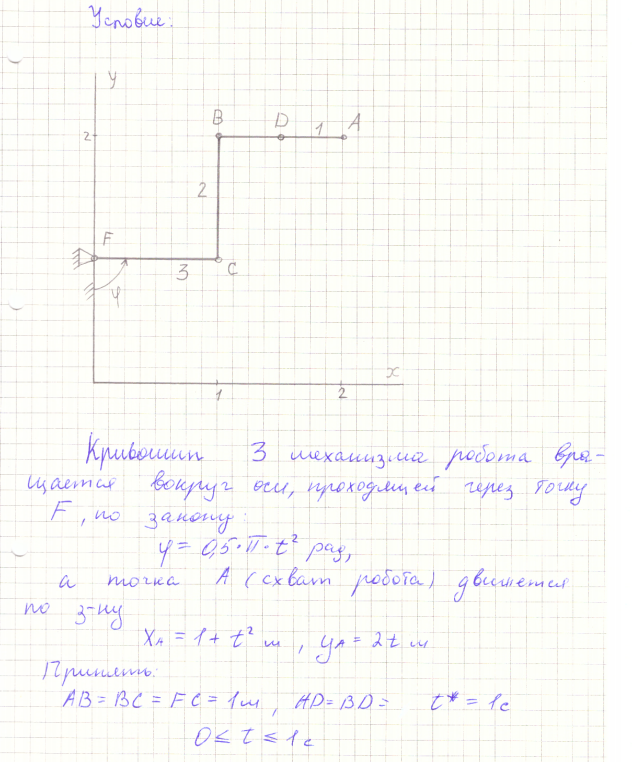 Условие:
y
B D 1 A
2
2
F
3 C
φ
x
1 2
Кривошип 3 механизма робота вра-
щается вокруг оси, проходящей через точку
F, по закону:
φ = 0,5·π·t² рад,
а точка A (схват робота) движется
по з-ну
xA = 1 + t² м, yA = 2t м
Принять:
AB = BC = FC = 1м, AD = BD = t* = 1с
0 ≤ t ≤ 1с